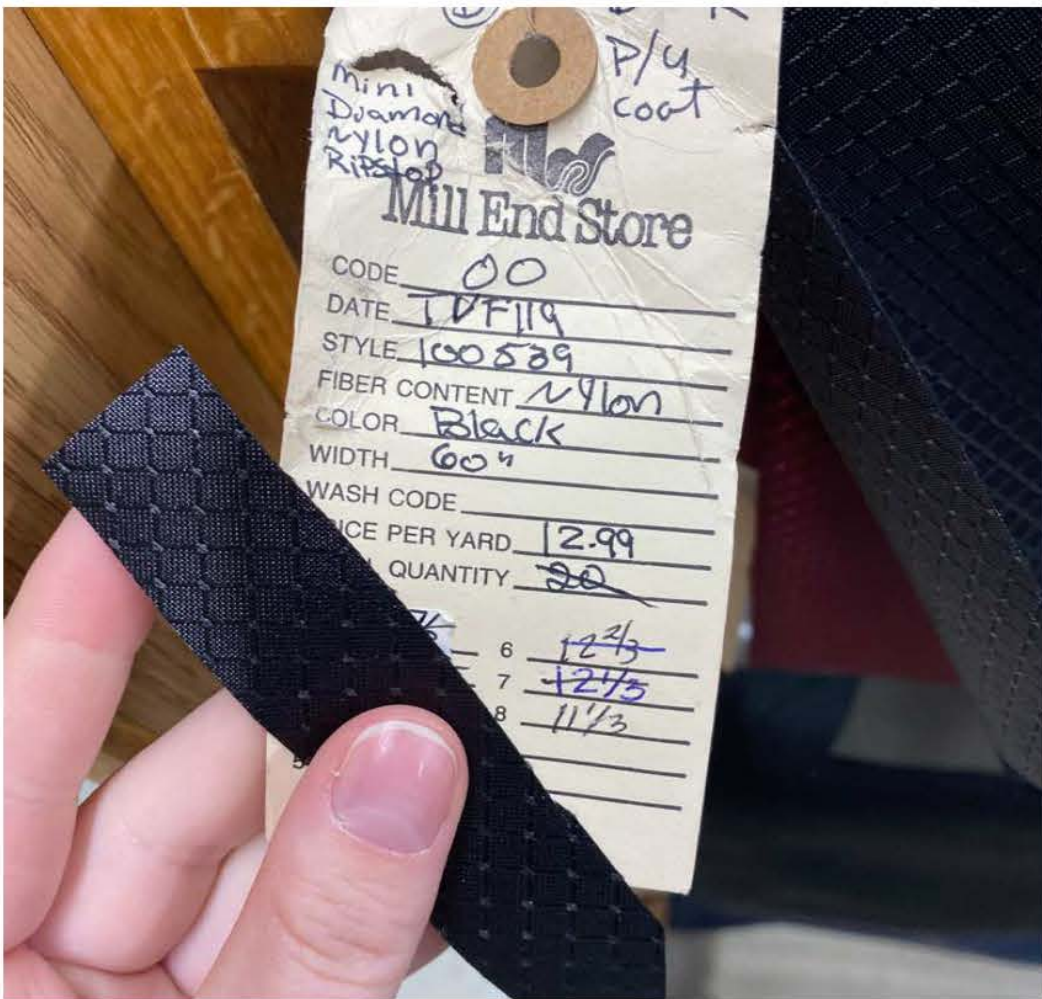 P/U
coat
mini
Diamond
Nylon
Ripstop
Mill End Store
CODE 00
DATE TDF119
STYLE 100539
FIBER CONTENT Nylon
COLOR Black
WIDTH 60"
WASH CODE
ICE PER YARD 12.99
QUANTITY 20
6 12 2/3
7 12 1/3
8 11 1/3